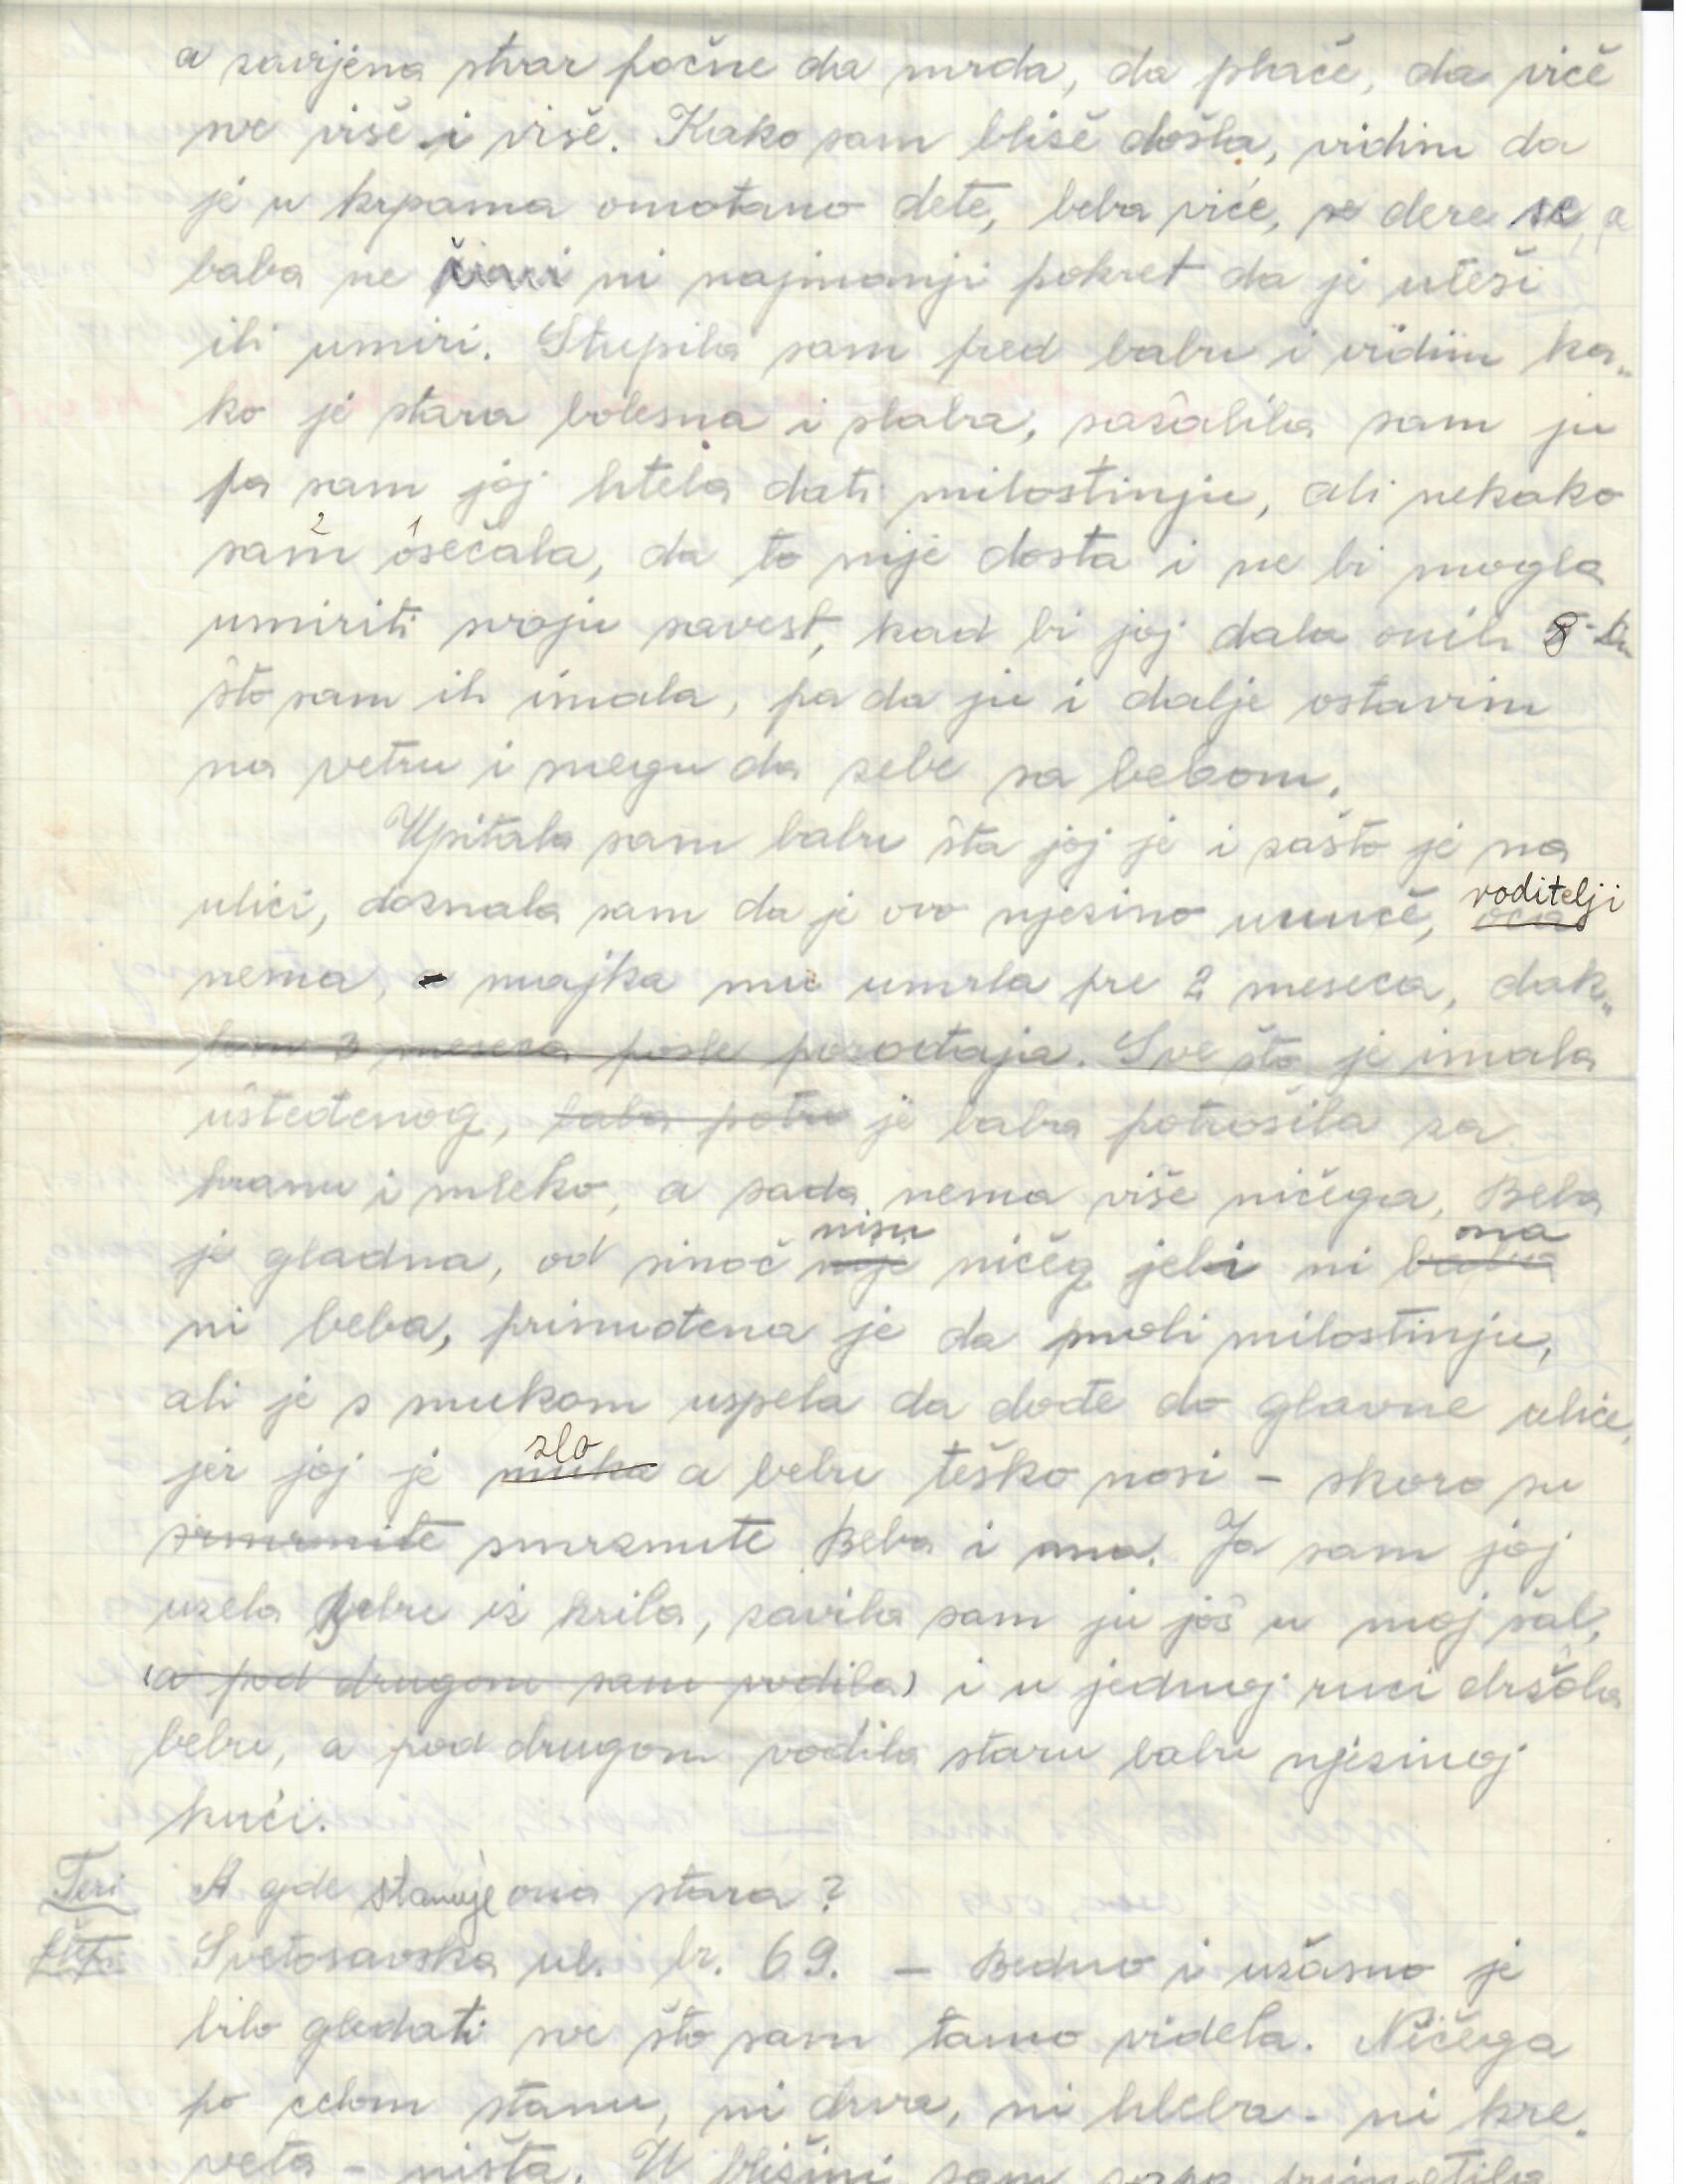 a zavijena stvar počne da mrda, da plače, da viče
sve više i više. Kako sam bliže došla, vidim da
je u krpama omotano dete, beba viče, se dere se, a
baba ne čini ni najmanji pokret da je uteši
ili umiri. Stupila sam pred babu i vidim ka„
ko je stara bolesna i slaba, sažalila sam ju
pa sam joj htela dati milostinju, ali nekako
2 1
sam osečala, da to nije dosta i ne bi mogla
umiriti svoju savest, kad bi joj dala onih 8
što sam ih imala, pa da ju i dalje ostavim
na vetru i snegu da zebe sa bebom.
Upitala sam babu šta joj je i zašto je na
ulici, doznala sam da je ovo njezino unuče, roditelji
nema, a majka mu umrla pre 2 meseca, dak„
lem 3 meseca posle porođaja. Sve što je imala
ušteđenog, baba potro je baba potrošila za
hranu i mleko, a sada nema više ničega, Beba
nisu ona
je gladna, od sinoč nije ničeg jeli ni baba
ni beba, prinuđena je da moli milostinju,
ali je s mukom uspela da dođe do glavne ulice,
zlo
jer joj je muka a bebu teško nosi – skoro su
smrznute Beba i ona. Ja sam joj
uzela Bebu iz krila, zavila sam ju još u moj šal,
(a pod drugom sam vodila) i u jednoj ruci držala
bebu, a pod drugom vodila staru babu njezinoj
kući.
Teri A gde stanuje ona stara?
Svetosavska ul. br. 69. – Bedno i užasno je
bilo gledati sve što sam tamo videla. Ničega
po celom stanu, ni drva, ni hleba - ni kre„
veta – ništa. U blizini sam